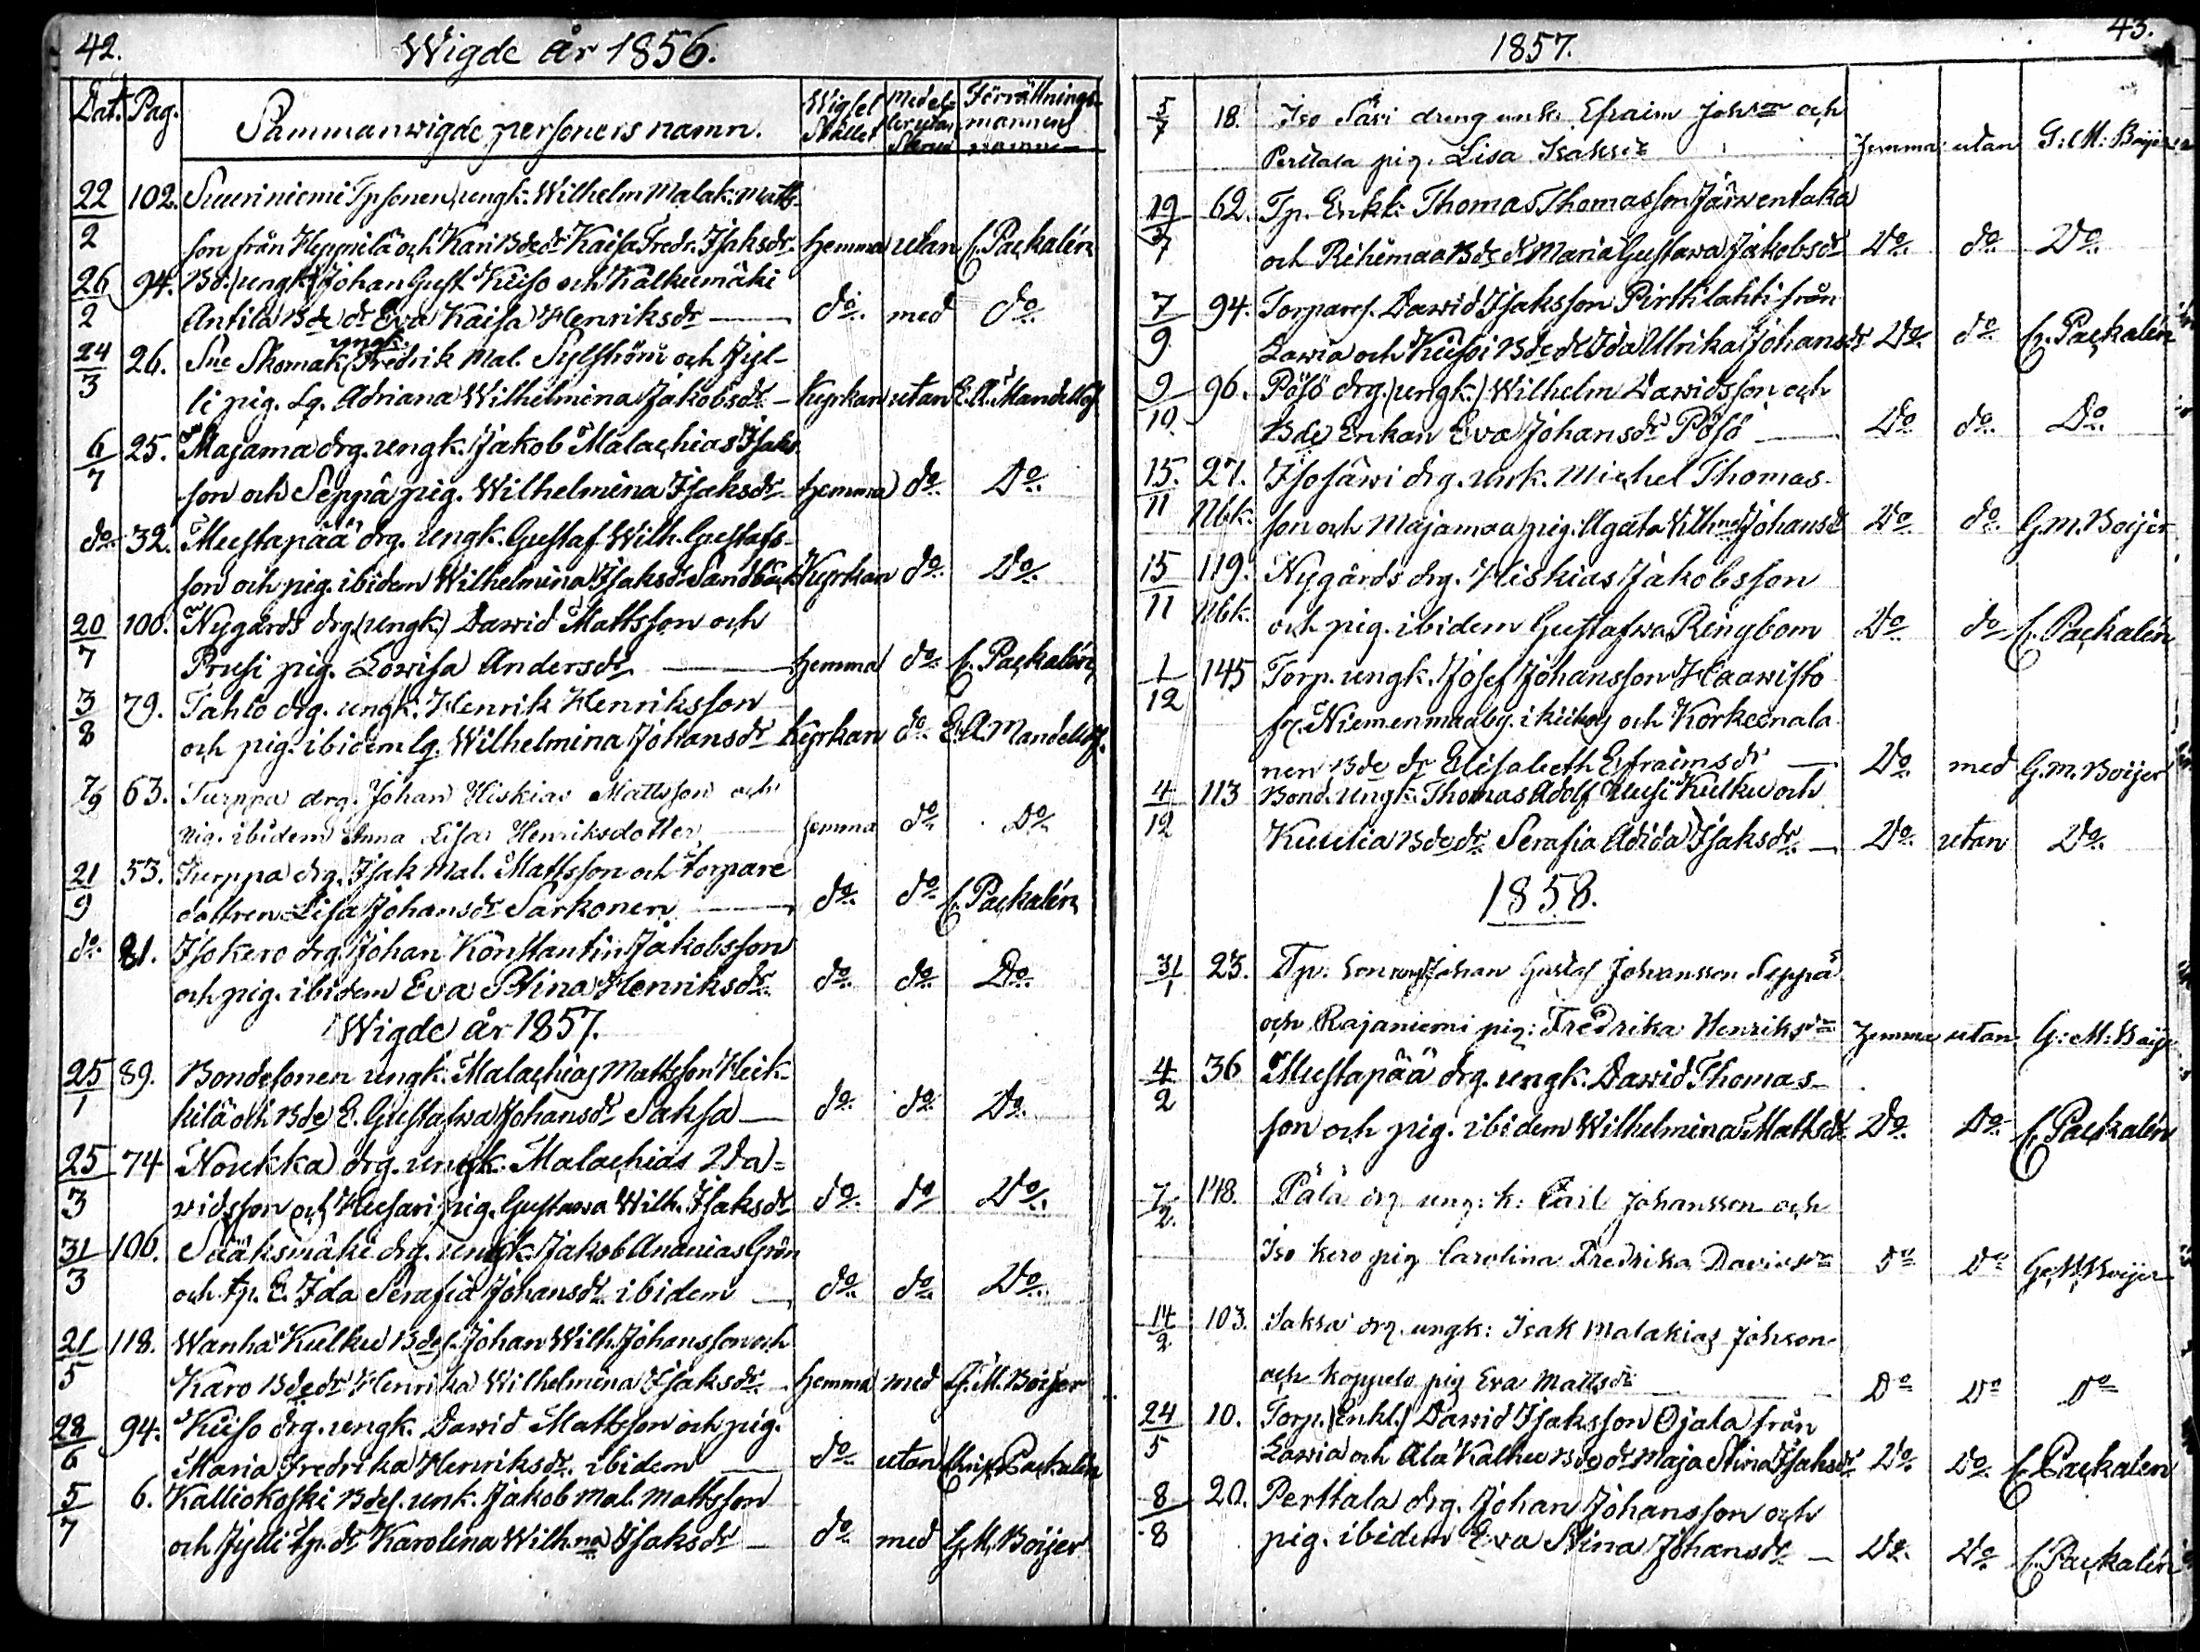 42.
Wigde år 1856.
Dat. Pag. Sammanwigde personers namn. Wigsel Stället Medel- ler utan Skrud Förrättnings- mannens namn
22/2 102. Suuriniemi Tpsonen, ungk. Wilhelm Malak. Matts-
son från Heppnilä och Kari Bdedr Kaisa Fredr. Isaksdr hemma utan C. Packalén
26/2 94. Bd. (ungk.) Johan Gust Kuiso och Kalkumäki
Antila Bde dr Eva Kaisa Henriksdr — do. med do.
24/3 26. Sne Skomak. ungk. Fredrik Mal. Sylström och Jyl-
li pig. Lg. Adriana Wilhelmina Jakobsdr — Kyrkan utan E. A. Mandellöf
6/7 25. Majama drg. ungk. Jakob Malachias Isaks-
son och Seppä pig. Wilhelmina Isaksdr hemma do. Do.
do. 32. Mustapää drg. ungk. Gustaf Wilh. Gustafs-
son och pig. ibidem Wilhelmina Isaksdr Sandbäck Kyrkan do. Do.
20/7 100. Nygårds drg. (ungk.) Dawid Mattsson och
Prusi pig. Lowisa Andersdr — hemma do. C. Packalén
3/8 79. Tahlo drg. ungk. Henrik Henriksson
och pig. ibidem lg. Wilhelmina Johansdr Kyrkan do. E. A. Mandellöf.
7/9 63. Turppa drg. Johan Hiskias Mattsson och
pig. ibidem Anna Lisa Henriksdotter — hemma do. Do.
21/9 53. Turppa drg. Isak Mal. Mattsson och torpare
dottren Lisa Johansdr Sarkonen — do. do. C. Packalén
do. 81. Isokero drg. Johan Konstantin Jakobsson
och pig. ibidem Eva Stina Henriksdr. do. do. Do.
Wigde år 1857.
25/1 89. Bondesonen ungk. Malachias Mattsson Heik-
kilä och Bde E. Gustafwa Johansdr Saksa — do. do. Do.
25/3 74 Noukka drg. ungk. Malachias Da=
widsson och Husari pig. Gustawa Wilh. Isaksdr do. do Do.
31/3 106. Sääksmäki drg. ungk. Jakob Ananias Grön
och tp. E. Ida Serafia Johansdr. ibidem — do. do. Do.
21/5 118. Wanha Kulku Bdes. Johan Wilh. Johansson och
Karo Bdedr Henrika Wilhelmina Isaksdr. hemma med G. M. Boijer
28/6 94. Kuiso drg. ungk. Dawid Mattsson och pig.
Maria Fredrika Henriksdr. ibidem — do. utan Chri. Packalén
5/7 6. Kalliokoski Bdes. unk. Jakob Mal. Mattsson
och Jylli tp. dr Karolina Wilh.na Isaksdr — do. med G. M. Boijer
43.
1857.
5/7 18. Iso Säwi dreng unk. Efraim Johsson och
Perttala pig. Lisa Isaksdr hemma utan G: M: Boijer
19/7 62. Tp. Enkl. Thomas Thomasson Järwentaka
och Rihimaa Bde dr Maria Gustawa Jakobsdr Do. do. Do.
7/9 94. Torpares. Dawid Isaksson Pirttilahti från
Lawia och Kuisoi Bde dr Ida Ulrika Johansdr Do. do. C. Packalén
9/10. 96. Pösö drg. (ungk.) Wilhelm Dawidsson och
Bde Enkan Eva Johansdr Pösö — Do. do. Do.
15./11 27. Isosäwi drg. unk. Michel Thomas-
Nbk. son och Majamaa pig. Agata Vilh.na Johansdr Do. do. G. M. Boijer
15/11 119. Nygårds drg. Hiskias Jakobsson
Nbk. och pig. ibidem Gustafwa Ringbom Do. do C. Packalén
1/12 145 Torp. ungk. Josef Johansson Haawisto
fr. Niemenmaa by. i Kiikoj och Korkeenala-
nen Bde dr Elisabeth Efraimsdr — Do. med G. M. Boijer
4/12 113 Bond. Ungk. Thomas Adolf Uusi Kulku och
Kuulia Bdedr. Serafia Adida Isaksdr. — Do. utan Do.
1858.
31/1 23. Tp. son ungk Johan Gustaf Johansson Seppä
och Rajaniemi pig: Fredrika Henriksdr hemma utan G: M: Boije
4/2 36 Mustapää drg. ungk. Dawid Thomas-
son och pig. ibidem Wilhelmina Mattsdr Do. Do. C. Packalén
7/2. 148. Pälä drg ung: k: Carl Johansson och
Iso kero pig Carolina Fredrika Davidsdr Do Do G. M. Boijer
14/2 103. Saksa drg. ungk: Isak Malakias Johsson
och Koppelo pig Eva Mattsdr Do Do Do
24/5 10. Torp. (Enkl.) Dawid Isaksson Ojala från
Lawia och Ala Kalku Bde dr Maja Stina Isaksdr Do. Do. C. Packalén
8/8 20. Perttala drg. Johan Johansson och
pig. ibidem Eva Stina Johansdr. — Do. Do C. Packalén